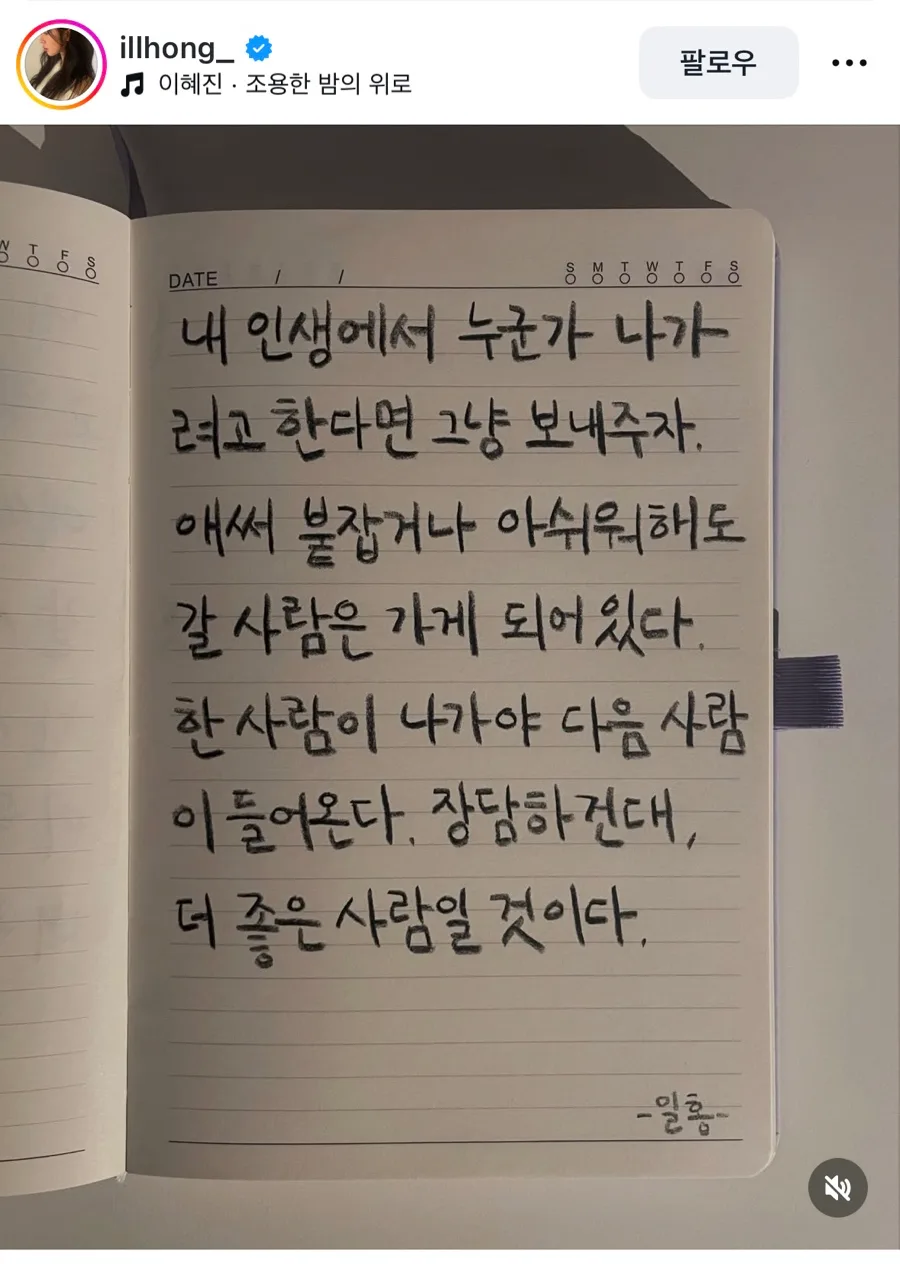 illhong_
이혜진 · 조용한 밤의 위로
팔로우
W T F S
DATE / /
S M T W T F S
내 인생에서 누군가 나가
려고 한다면 그냥 보내주자.
애써 붙잡거나 아쉬워해도
갈 사람은 가게 되어있다.
한 사람이 나가야 다음 사람
이 들어온다. 장담하건대,
더 좋은 사람일 것이다.
-일홍-